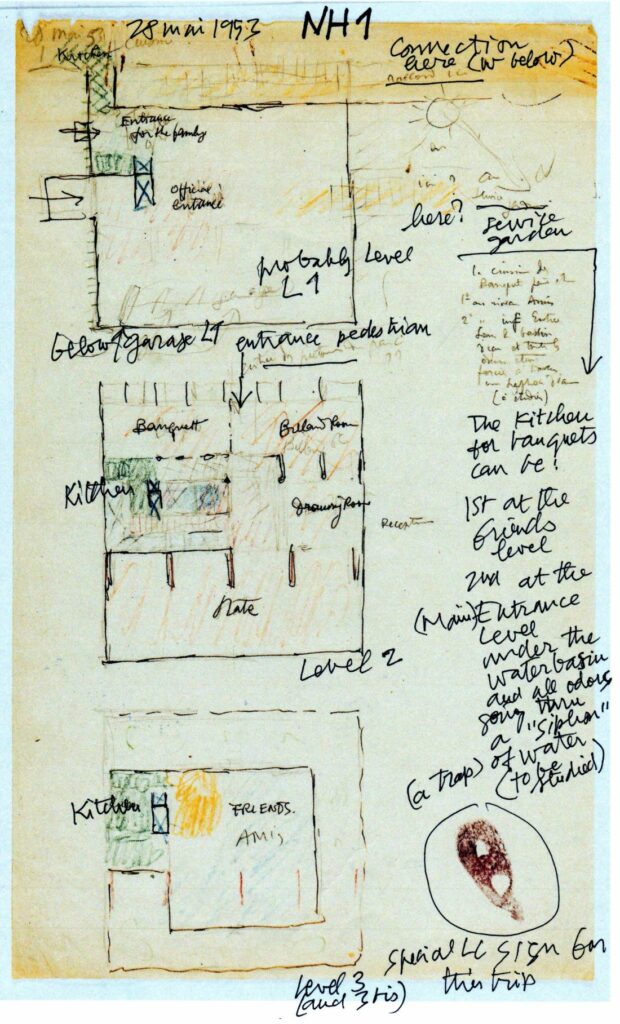 28 mai 1953
NH1
28 mai 53
Kitchen
Connection
here (IV below)
Raccord LC
Entrance
for the family
official
entrance
here?
service
garden
probably Level
L1
below garage L1
entrance pedestrian
la cuisine des
Banquet peut être
1° au niveau Amis
2°
(à étudier)
Banquett
Billard Room
Kitchen
Drawing Room
Reception
State
Level 2
The Kitchen
for banquets
can be:
1st at the
friends
level
2nd at the
(Main) Entrance
Level
under the
water basin
and all odors
going thru
a "siphon"
(a trap) of water
(to be
studied)
Kitchen
FRIENDS.
AMIS
Level 3
(and 3 bis)
special LC sign for
this trip